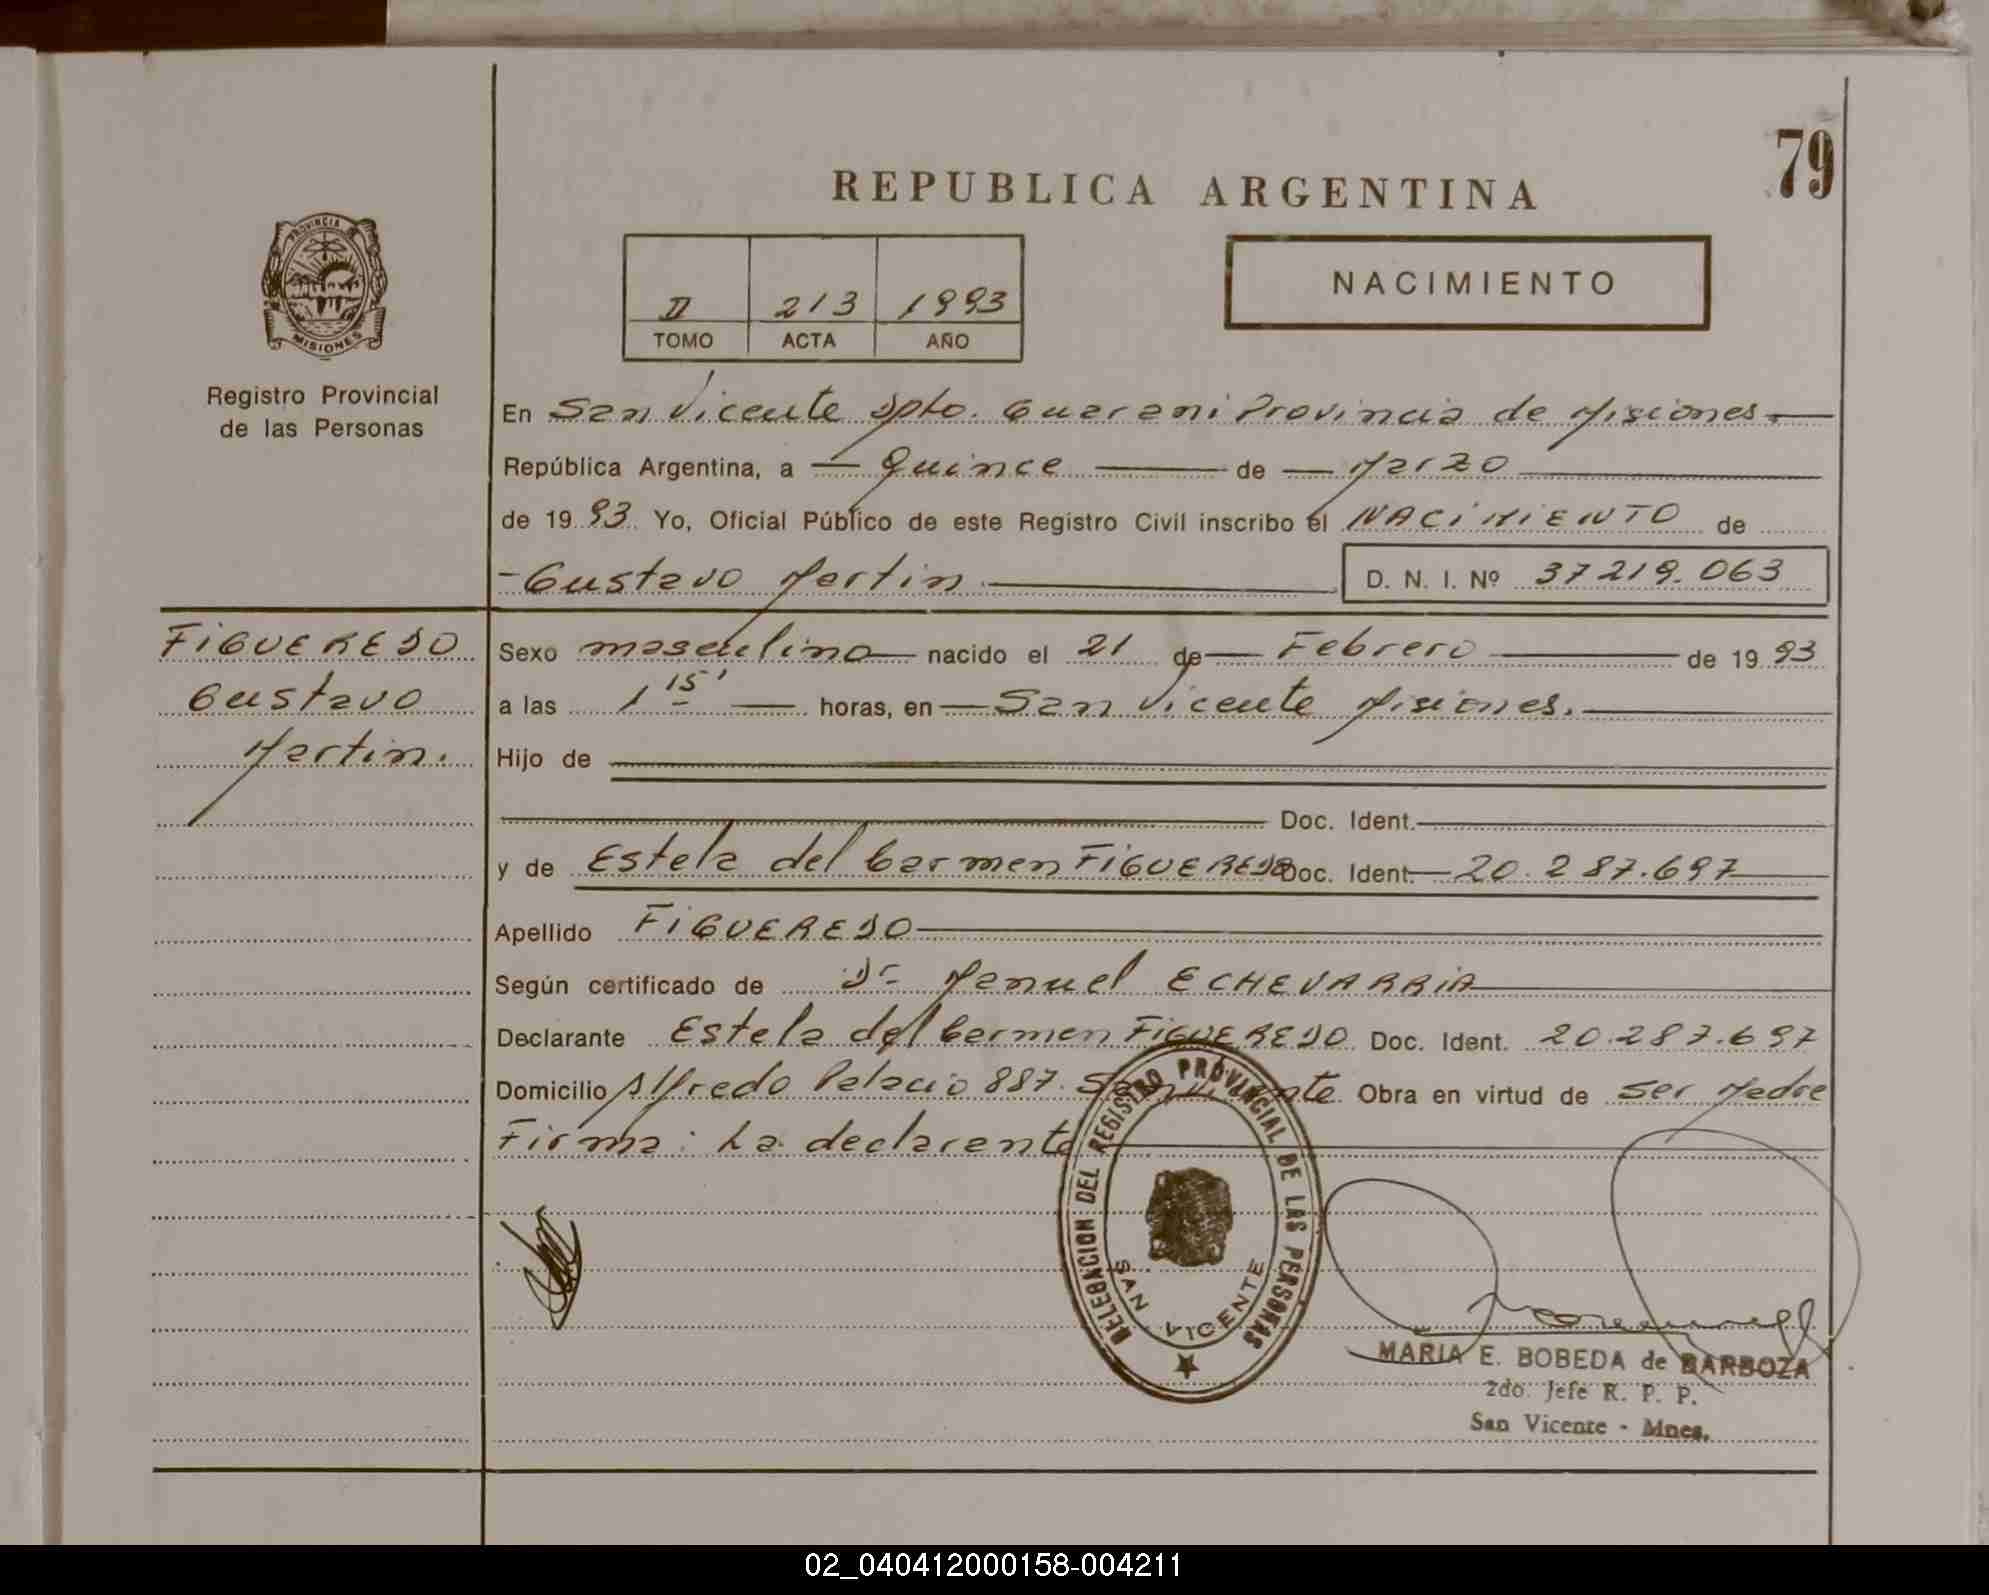 79
REPUBLICA ARGENTINA
NACIMIENTO
PROVINCIA
MISIONES
II 213 1993
TOMO ACTA AÑO
Registro Provincial
de las Personas
En San Vicente Dpto. Guarani Provincia de Misiones.
República Argentina, a Quince de Marzo
de 1993. Yo, Oficial Público de este Registro Civil inscribo el NACIMIENTO de
Gustavo Martin.
D. N. I. Nº 37219.063
FIGUEREDO
Gustavo
Martin.
Sexo masculino nacido el 21 de Febrero de 1993
a las 1 15' horas, en San Vicente Misiones.
Hijo de
Doc. Ident.
y de Estela del Carmen FIGUEREDO Doc. Ident. 20.287.697
Apellido FIGUEREDO
Según certificado de Dr Manuel ECHEVARRIA
Declarante Estela del Carmen FIGUEREDO Doc. Ident. 20.287.697
Domicilio Alfredo Palacio 887. San Vicente. Obra en virtud de ser Madre
Firma: La declarante
DELEGACION DEL REGISTRO PROVINCIAL DE LAS PERSONAS
SAN VICENTE
MARIA E. BOBEDA de BARBOZA
2do. Jefe R. P. P.
San Vicente - Mnes.
02_040412000158-004211